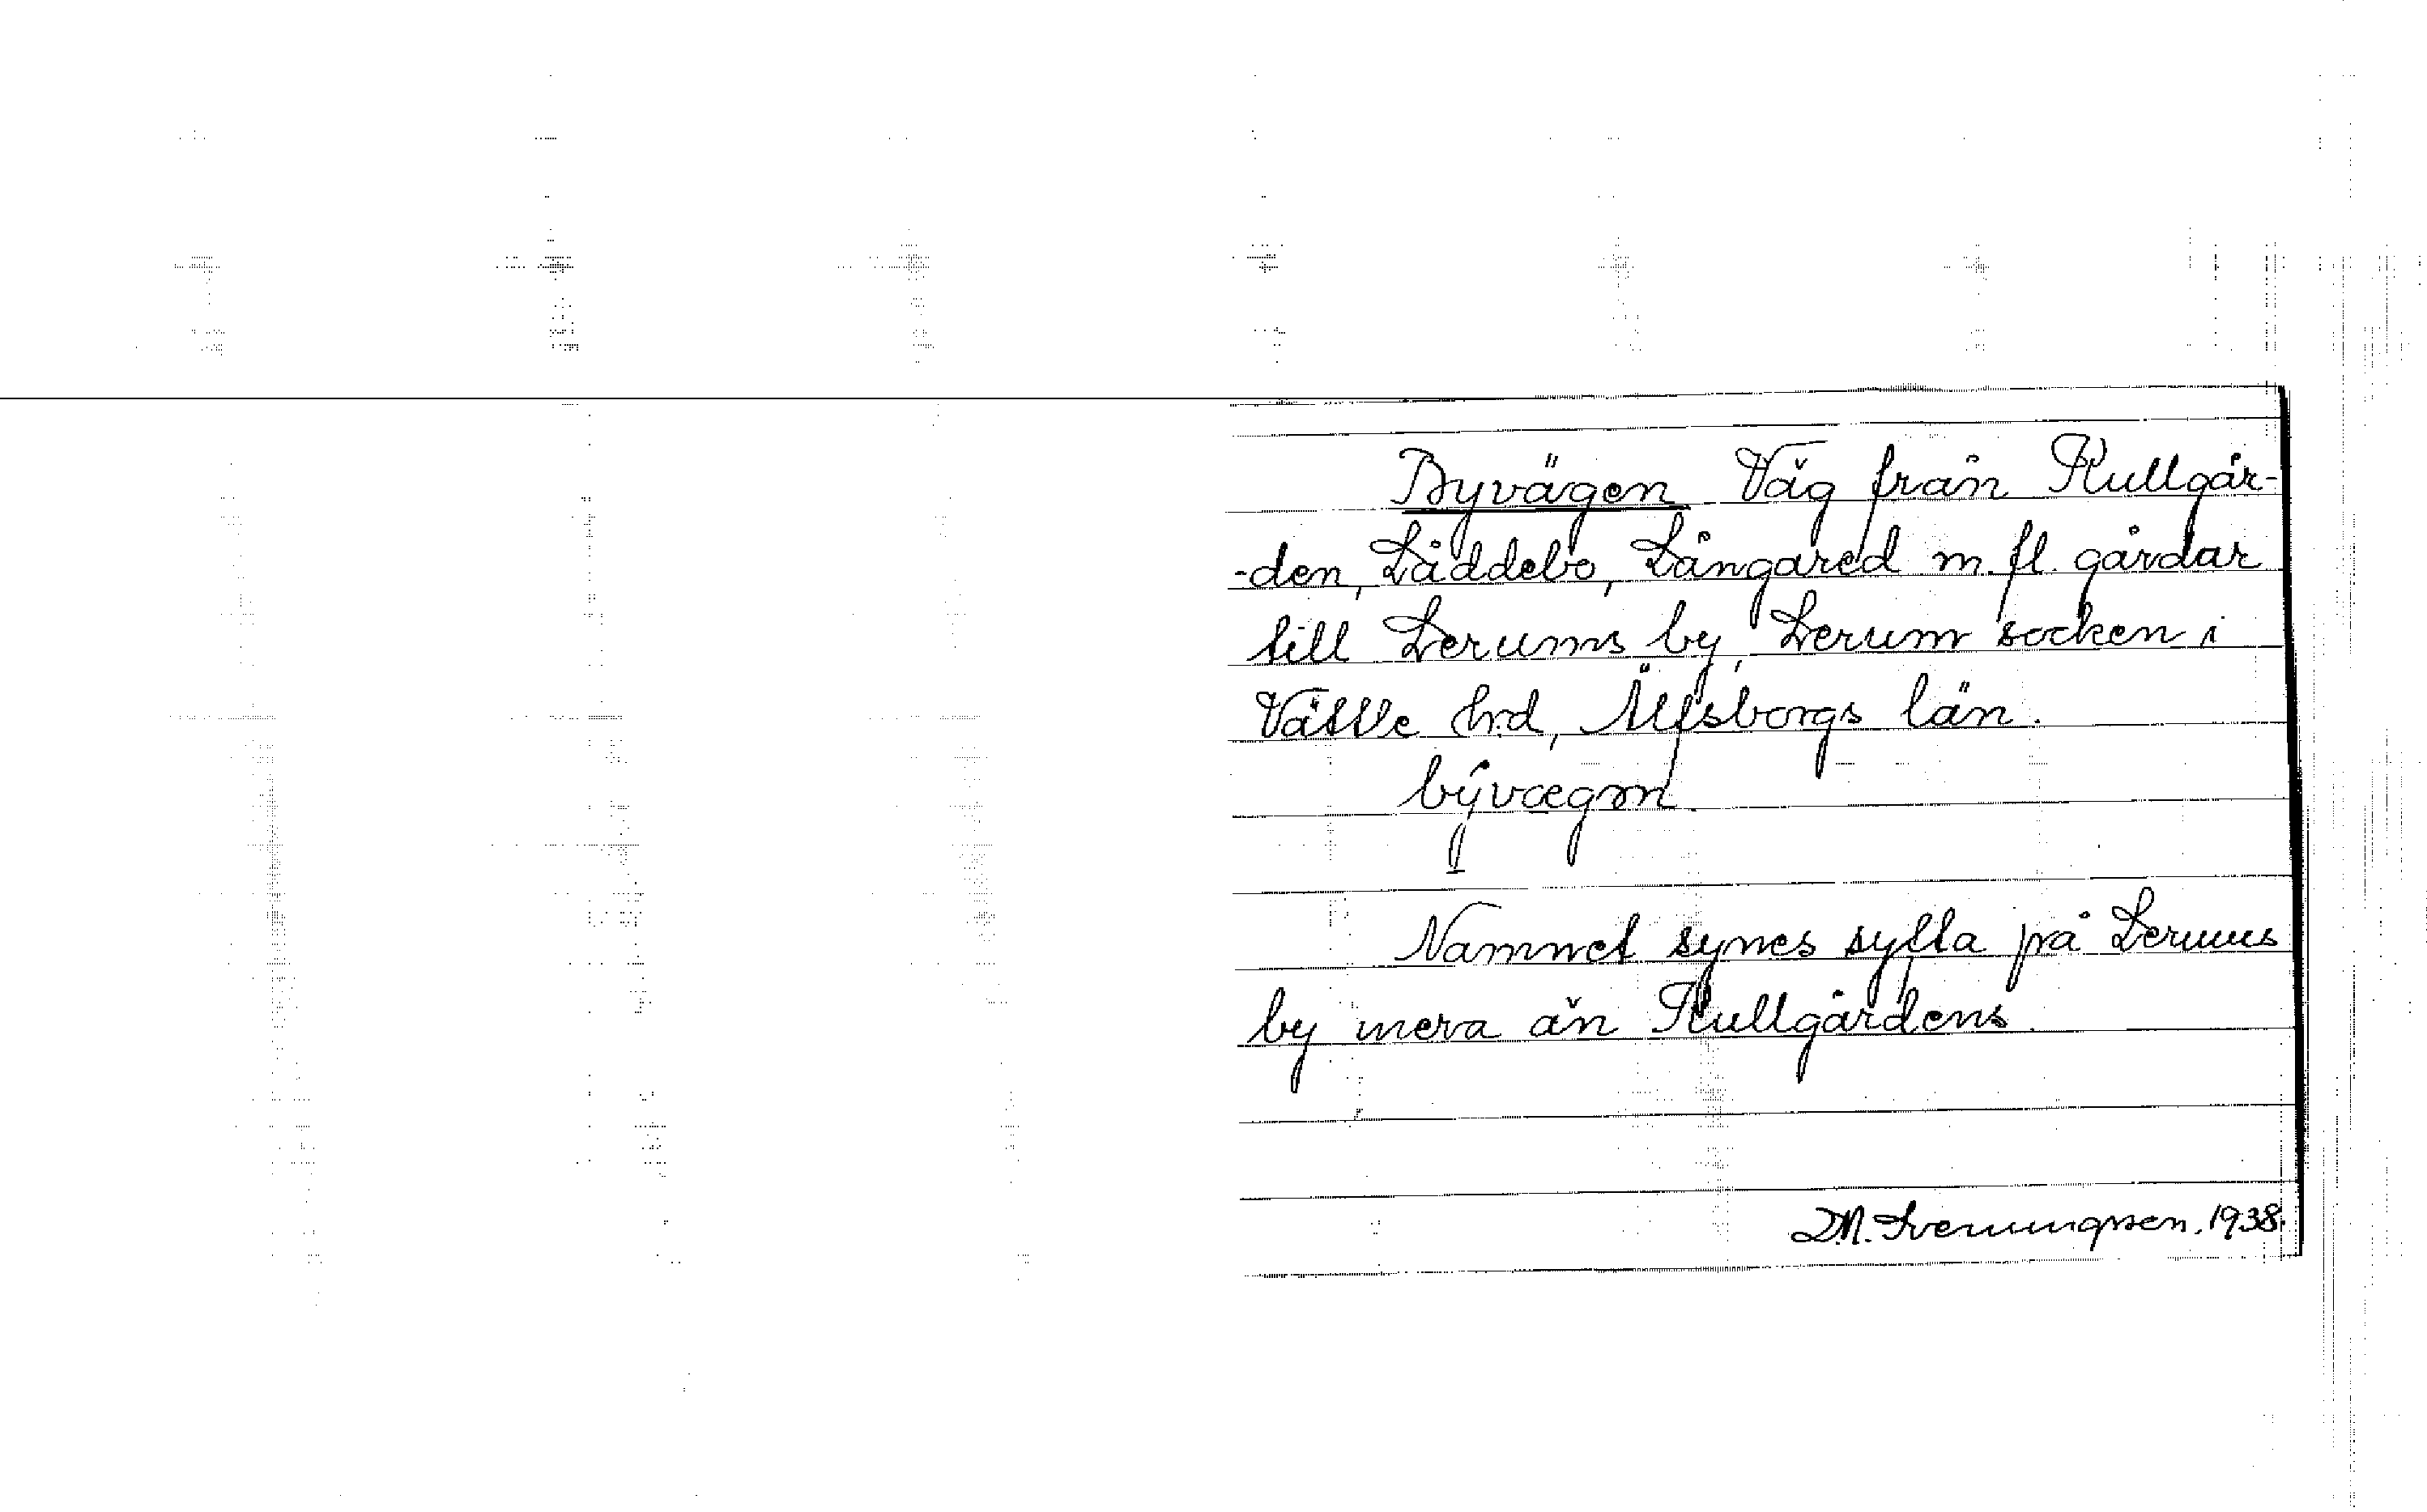 Byvägen Väg från Kullgår-
-den, Låddebo, Långared m. fl. gårdar
till Lerums by, Lerum socken i
Vättle hrd, Älfsborgs län.
bývægɷn.
Namnet synes syfta på Lerums
by mera än Kullgårdens.
D.N. Svenungssen. 1938.